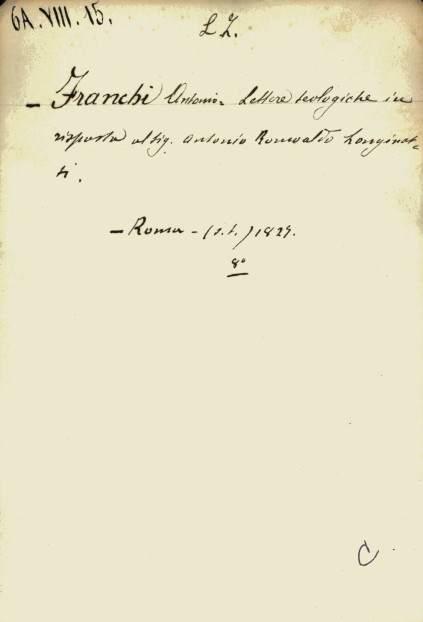 6A.VIII.15.
L Z.
- Franchi Antonio. Lettere teologiche in
risposta al sig. Antonio Romoaldo Longinot-
ti.
- Roma - (s.t.) 1829.
8°
C